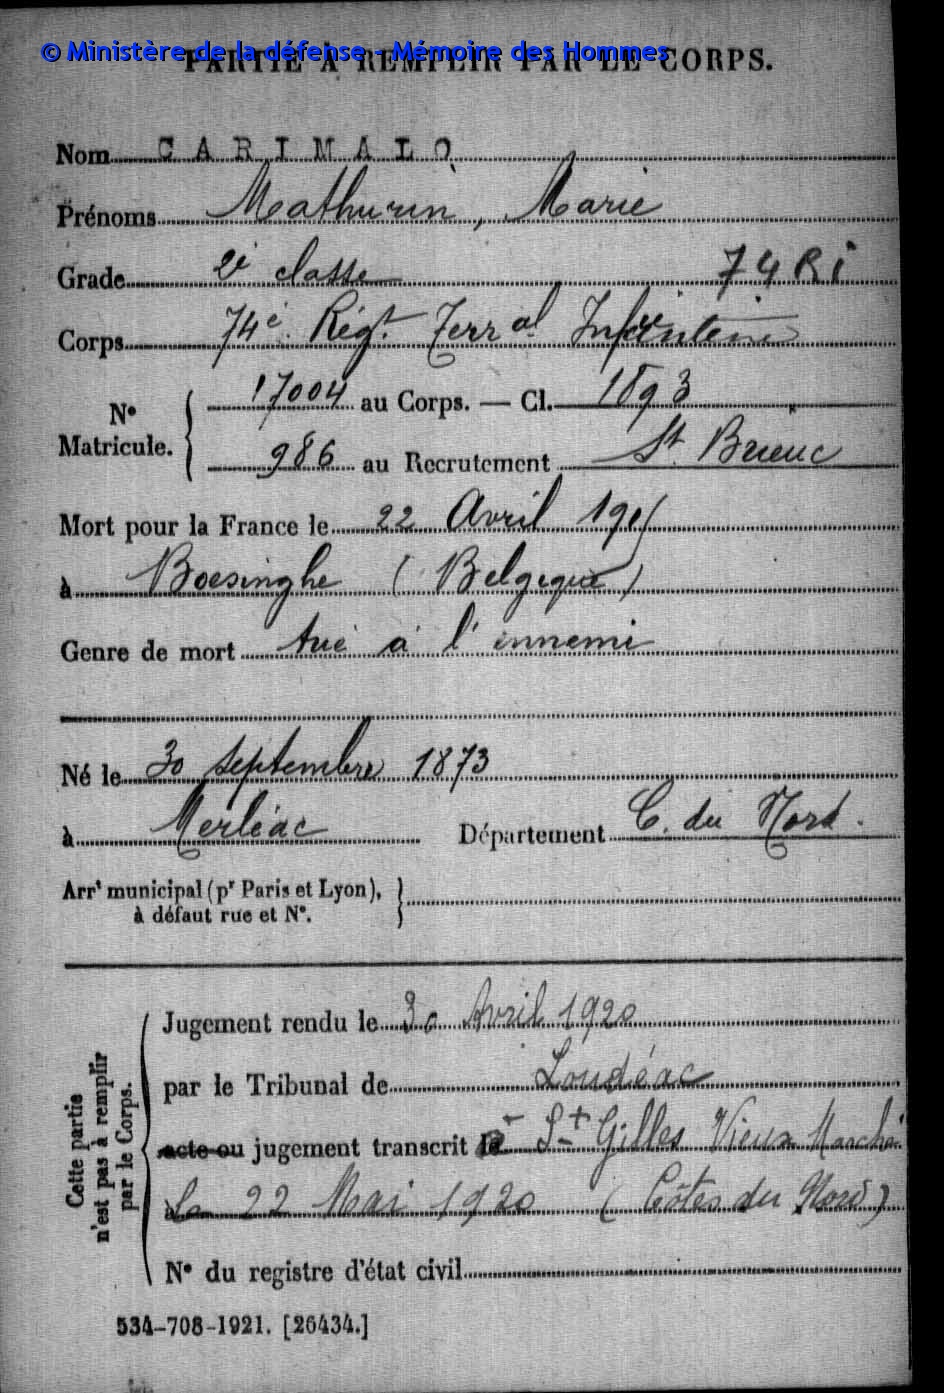 © Ministère de la défense - Mémoire des Hommes
PARTIE À REMPLIR PAR LE CORPS.
Nom CARIMALO
Prénoms Mathurin, Marie
Grade 2e classe 74 RI
Corps 74e Régt. Terral Infanterie
No Matricule. { 17004 au Corps. — Cl. 1893
986 au Recrutement St Brieuc
Mort pour la France le 22 Avril 1915
à Boesinghe (Belgique)
Genre de mort tué à l'ennemi
Né le 30 septembre 1873
à Merléac Département C. du Nord.
Arrt municipal (pr Paris et Lyon),
à défaut rue et No.
Cette partie n'est pas à remplir par le Corps.
Jugement rendu le 30 Avril 1920
par le Tribunal de Loudéac
acte ou jugement transcrit à St Gilles Vieux Marché
le 22 Mai 1920 (Côtes du Nord)
No du registre d'état civil
534-708-1921. [26434.]